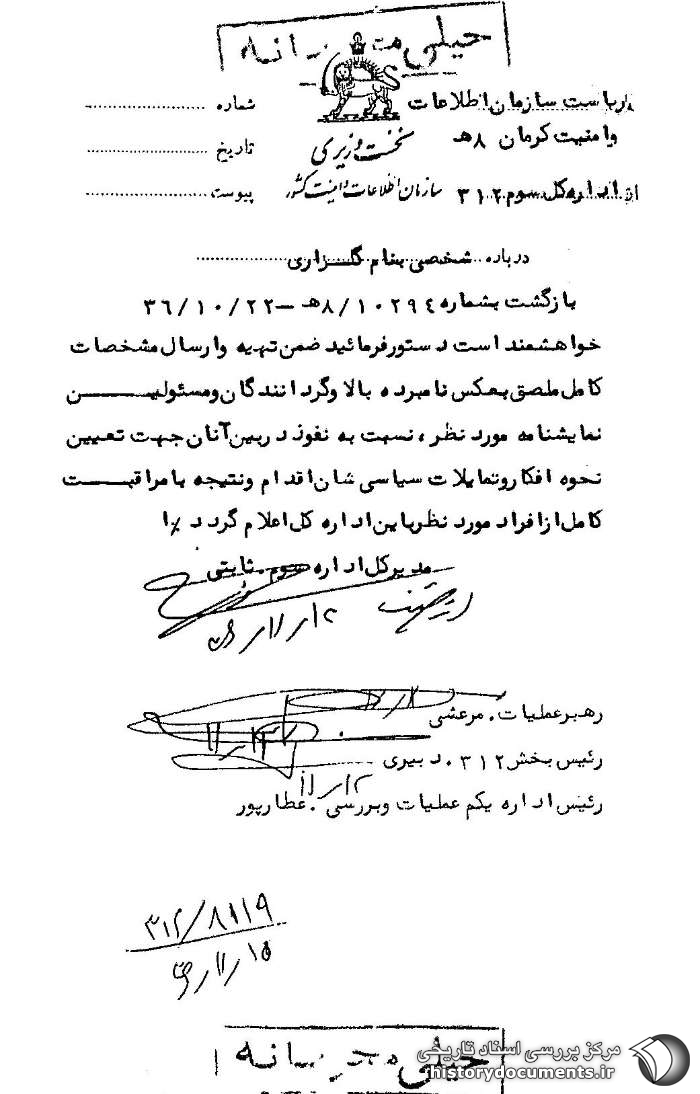 خیلی محرمانه
بریاست سازمان اطلاعات
وامنیت کرمان ۸هـ
از اداره کل سوم ۳۱۲
نخست وزیری
سازمان اطلاعات و امنیت کشور
شماره
تاریخ
پیوست
درباره شخصی بنام گلزاری
بازگشت بشماره ۸/۱۰۲۹٤هـ – ۳۶/۱۰/۲۲
خواهشمند است دستور فرمائید ضمن تهیه وارسال مشخصات
کامل ملصق بعکس نامبرده بالا وگردانندگان ومسئولیـــن
نمایشنامه مورد نظر، نسبت به نفوذ دربین آنان جهت تعیین
نحوه افکاروتمایلات سیاسی شان اقدام ونتیجه بامراقبــت
کامل ازافراد مورد نظرباین اداره کل اعلام گردد ٪ا
مدیرکل اداره سوم. ثابتی
رهبرعملیات. مرعشی
رئیس بخش ۳۱۲. دبیری
۱۱/۱۲
رئیس اداره یکم عملیات وبررسی. عطارپور
۳۱۲/۸۱۱۹
۱۵/۱۱/۳۶
خیلی محرمانه
مرکز بررسی اسناد تاریخی
historydocuments.ir